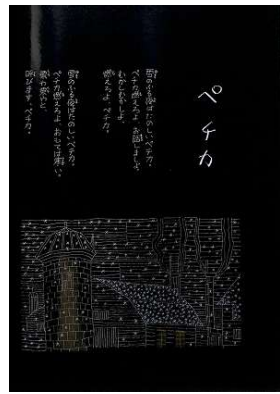 ペチカ
雪のふる夜はたのしいペチカ。
ペチカ燃えろよ。お話しましよ。
むかしむかしよ。
燃えろよ、ペチカ。
雪のふる夜はたのしいペチカ。
ペチカ燃えろよ。おもては寒い。
栗や栗やと、
呼びます。ペチカ。